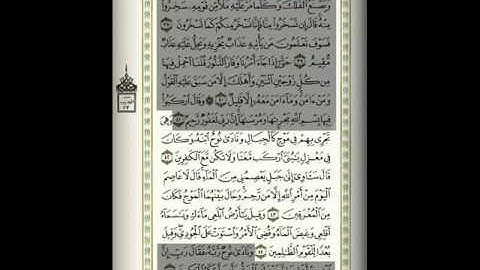 وَيَصْنَعُ ٱلْفُلْكَ وَكُلَّمَا مَرَّ عَلَيْهِ مَلَأٌ مِّن قَوْمِهِۦ سَخِرُوا۟
مِنْهُ قَالَ إِن تَسْخَرُوا۟ مِنَّا فَإِنَّا نَسْخَرُ مِنكُمْ كَمَا تَسْخَرُونَ ٣٨
فَسَوْفَ تَعْلَمُونَ مَن يَأْتِيهِ عَذَابٌ يُخْزِيهِ وَيَحِلُّ عَلَيْهِ عَذَابٌ
مُّقِيمٌ ٣٩ حَتَّىٰٓ إِذَا جَآءَ أَمْرُنَا وَفَارَ ٱلتَّنُّورُ قُلْنَا ٱحْمِلْ فِيهَا
مِن كُلٍّ زَوْجَيْنِ ٱثْنَيْنِ وَأَهْلَكَ إِلَّا مَن سَبَقَ عَلَيْهِ ٱلْقَوْلُ
وَمَنْ ءَامَنَ وَمَآ ءَامَنَ مَعَهُۥٓ إِلَّا قَلِيلٌ ٤٠ وَقَالَ ٱرْكَبُوا۟
فِيهَا بِسْمِ ٱللَّهِ مَجْر۪ىٰهَا وَمُرْسَىٰهَآ إِنَّ رَبِّى لَغَفُورٌ رَّحِيمٌ ٤١ وَهِىَ
تَجْرِى بِهِمْ فِى مَوْجٍ كَٱلْجِبَالِ وَنَادَىٰ نُوحٌ ٱبْنَهُۥ وَكَانَ
فِى مَعْزِلٍ يَٰبُنَىَّ ٱرْكَب مَّعَنَا وَلَا تَكُن مَّعَ ٱلْكَٰفِرِينَ ٤٢
قَالَ سَـَٔاوِىٓ إِلَىٰ جَبَلٍ يَعْصِمُنِى مِنَ ٱلْمَآءِ قَالَ لَا عَاصِمَ
ٱلْيَوْمَ مِنْ أَمْرِ ٱللَّهِ إِلَّا مَن رَّحِمَ وَحَالَ بَيْنَهُمَا ٱلْمَوْجُ فَكَانَ
مِنَ ٱلْمُغْرَقِينَ ٤٣ وَقِيلَ يَٰٓأَرْضُ ٱبْلَعِى مَآءَكِ وَيَٰسَمَآءُ
أَقْلِعِى وَغِيضَ ٱلْمَآءُ وَقُضِىَ ٱلْأَمْرُ وَٱسْتَوَتْ عَلَى ٱلْجُودِىِّ وَقِيلَ
بُعْدًا لِّلْقَوْمِ ٱلظَّٰلِمِينَ ٤٤ وَنَادَىٰ نُوحٌ رَّبَّهُۥ فَقَالَ رَبِّ إِنَّ